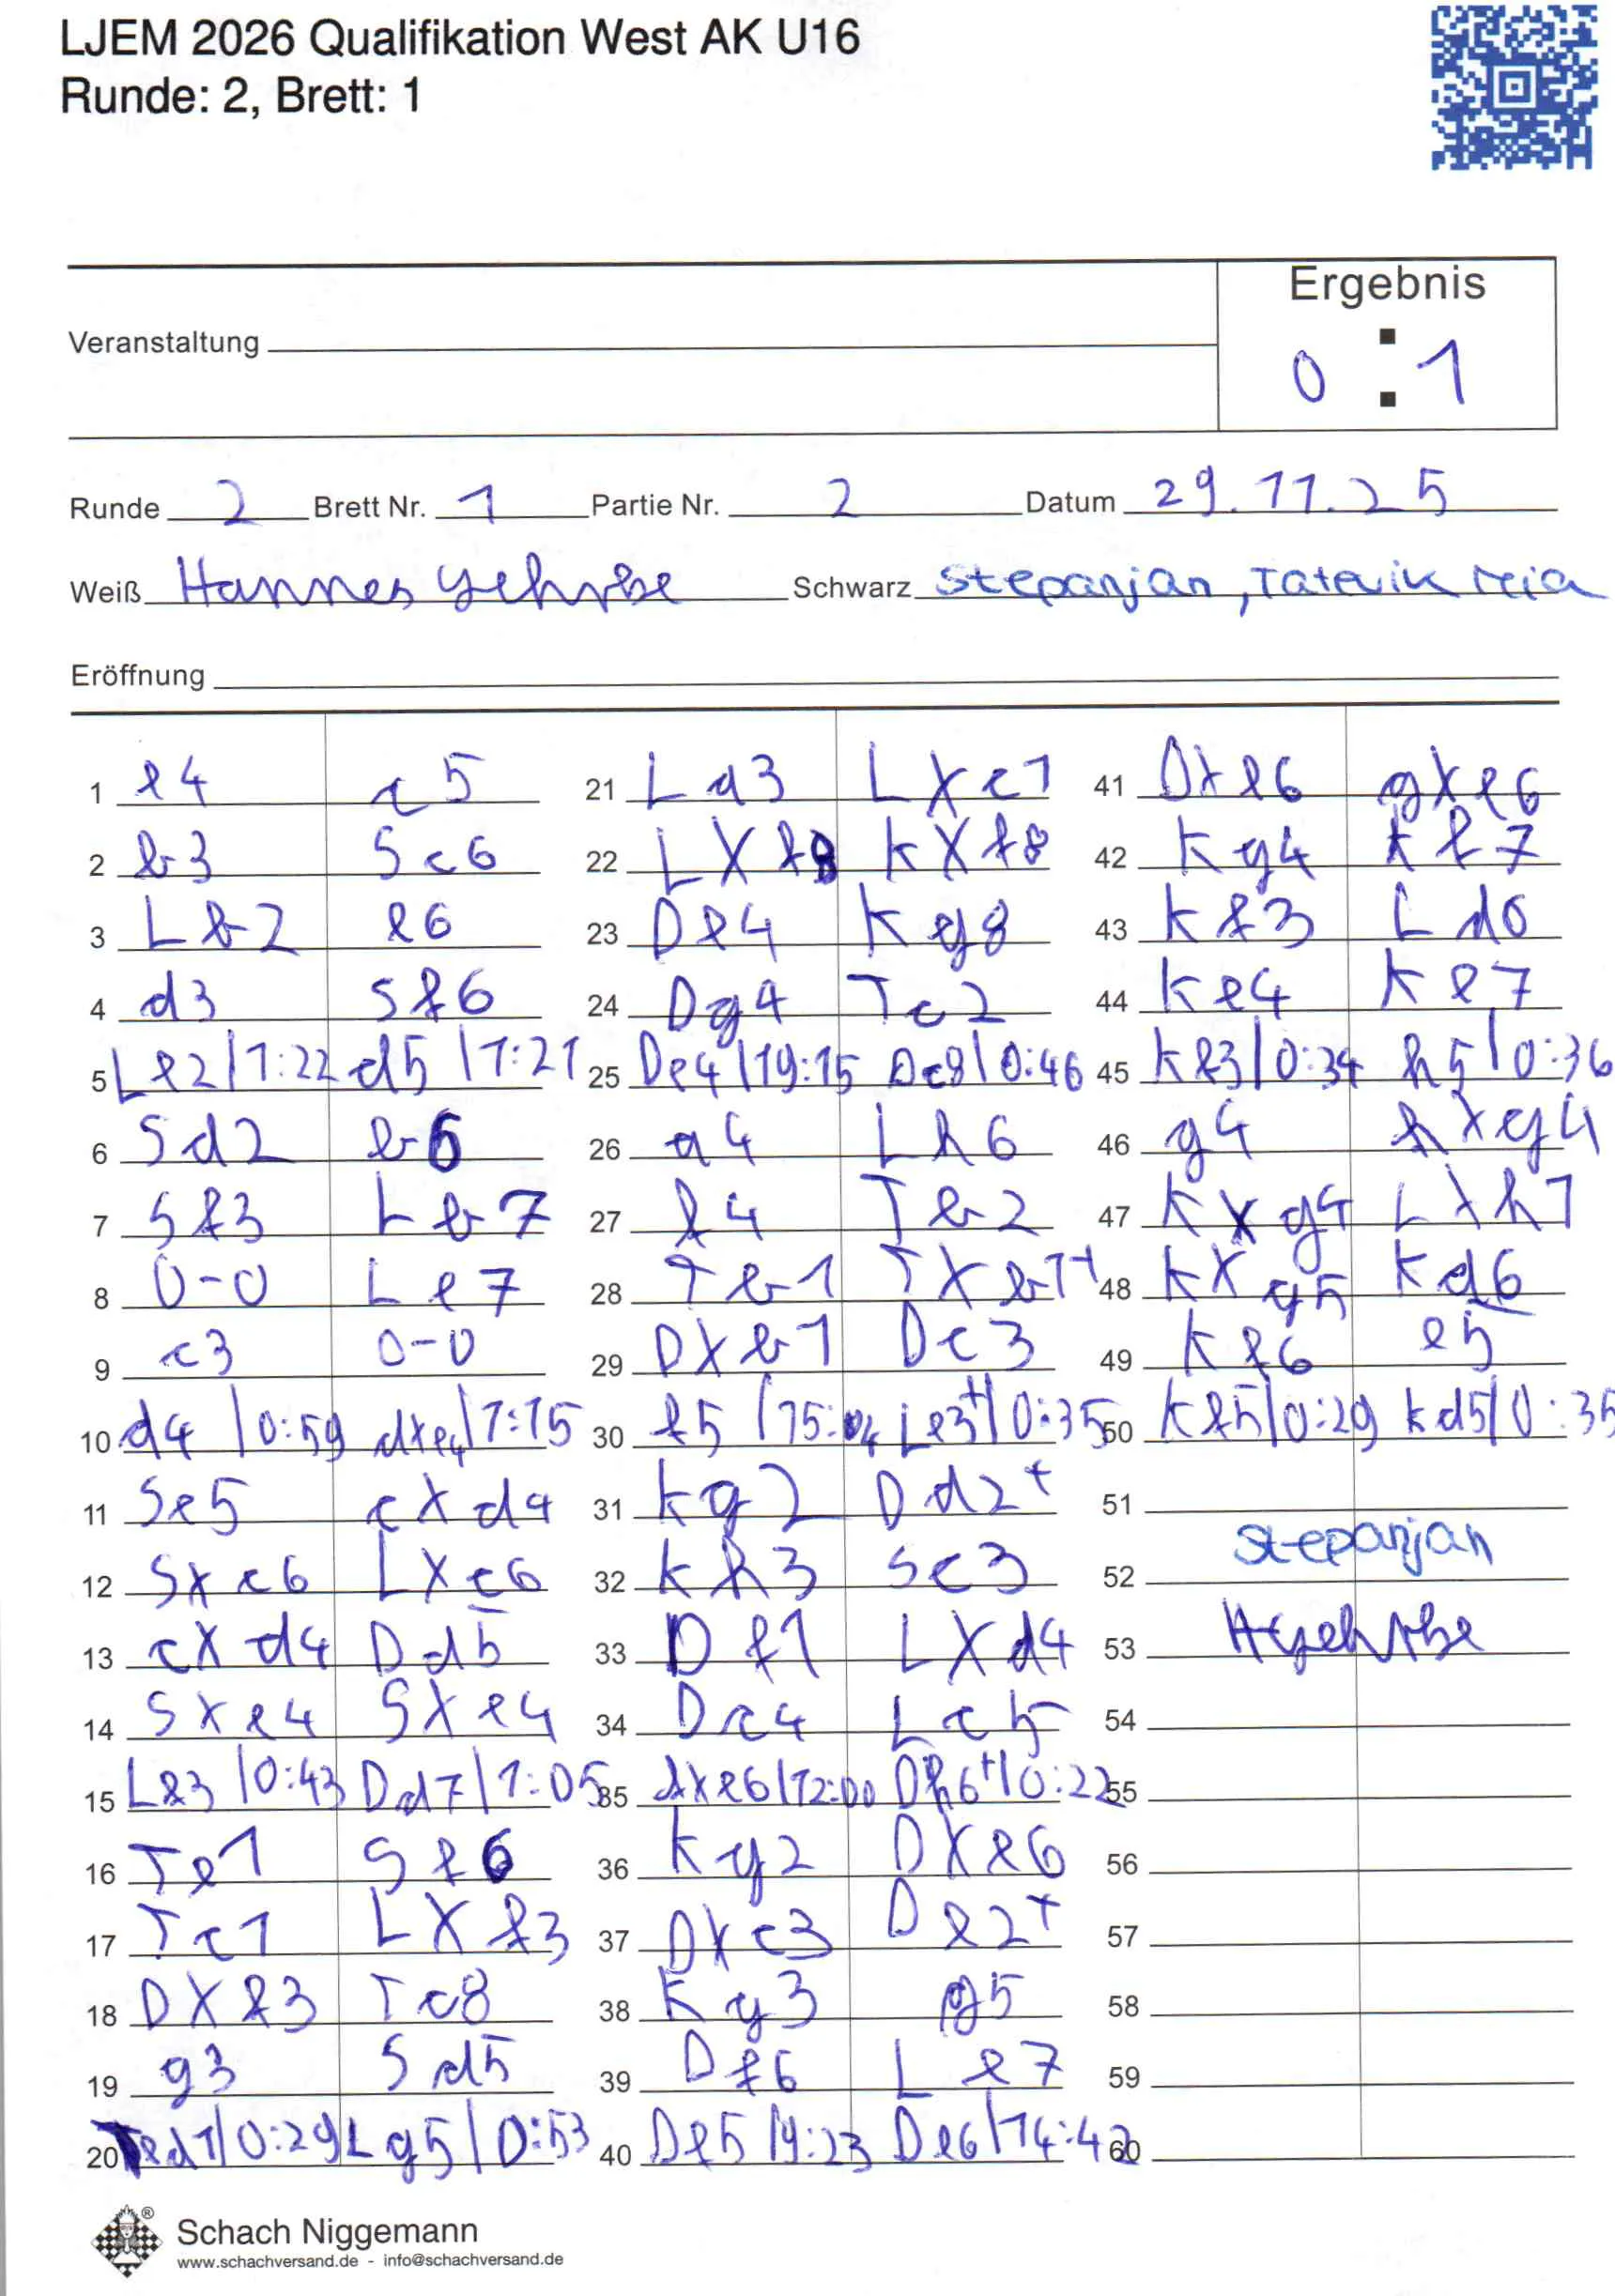 LJEM 2026 Qualifikation West AK U16
Runde: 2, Brett: 1
Ergebnis
Veranstaltung
0 : 1
Runde 2 Brett Nr. 1 Partie Nr. 2 Datum 29.11.25
Weiß Hannes Schwarz Stepanjan, Tatevik
Eröffnung
1 e4 c5 21 La3 Lxc1 41 Dxe6 gxe6
2 b3 Sc6 22 Lxf8 Kxf8 42 Kg4 Kf7
3 Lb2 e6 23 De4 Kg8 43 Kf3 Ld6
4 d3 Sf6 24 Dg4 Tc2 44 Ke4 Ke7
5 Le2 | 1:22 d5 | 1:21 25 De4 | 19:15 Dc8 | 0:46 45 Kf3 | 0:34 h5 | 0:36
6 Sd2 b6 26 a4 Lh6 46 g4 hxg4
7 Sf3 Lb7 27 f4 Tb2 47 Kxg4 Lxh7
8 0-0 Le7 28 Tb1 Txb1+ 48 Kxg5 Kd6
9 c3 0-0 29 Dxb1 Dc3 49 Kf6 e5
10 d4 | 0:59 dxe4 | 1:15 30 f5 | 15:04 Le3+ | 0:35 50 Kf5 | 0:29 Kd5 | 0:35
11 Se5 cxd4 31 Kg2 Dd2+ 51
12 Sxc6 Lxc6 32 Kh3 Sc3 52 Stepanjan
13 cxd4 Dd5 33 Df1 Lxd4 53
14 Sxe4 Sxe4 34 Dc4 Lc5 54
15 Lf3 | 0:43 Dd7 | 1:05 35 fxe6 | 12:00 Dh6+ | 0:22 55
16 Te1 Sf6 36 Kg2 Dxe6 56
17 Tc1 Lxf3 37 Dxc3 De2+ 57
18 Dxf3 Tc8 38 Kg3 g5 58
19 g3 Sd5 39 Df6 Le7 59
20 Ted1 | 0:29 Lg5 | 0:53 40 Df5 | 9:23 De6 | 14:42 60
®
Schach Niggemann
www.schachversand.de - info@schachversand.de